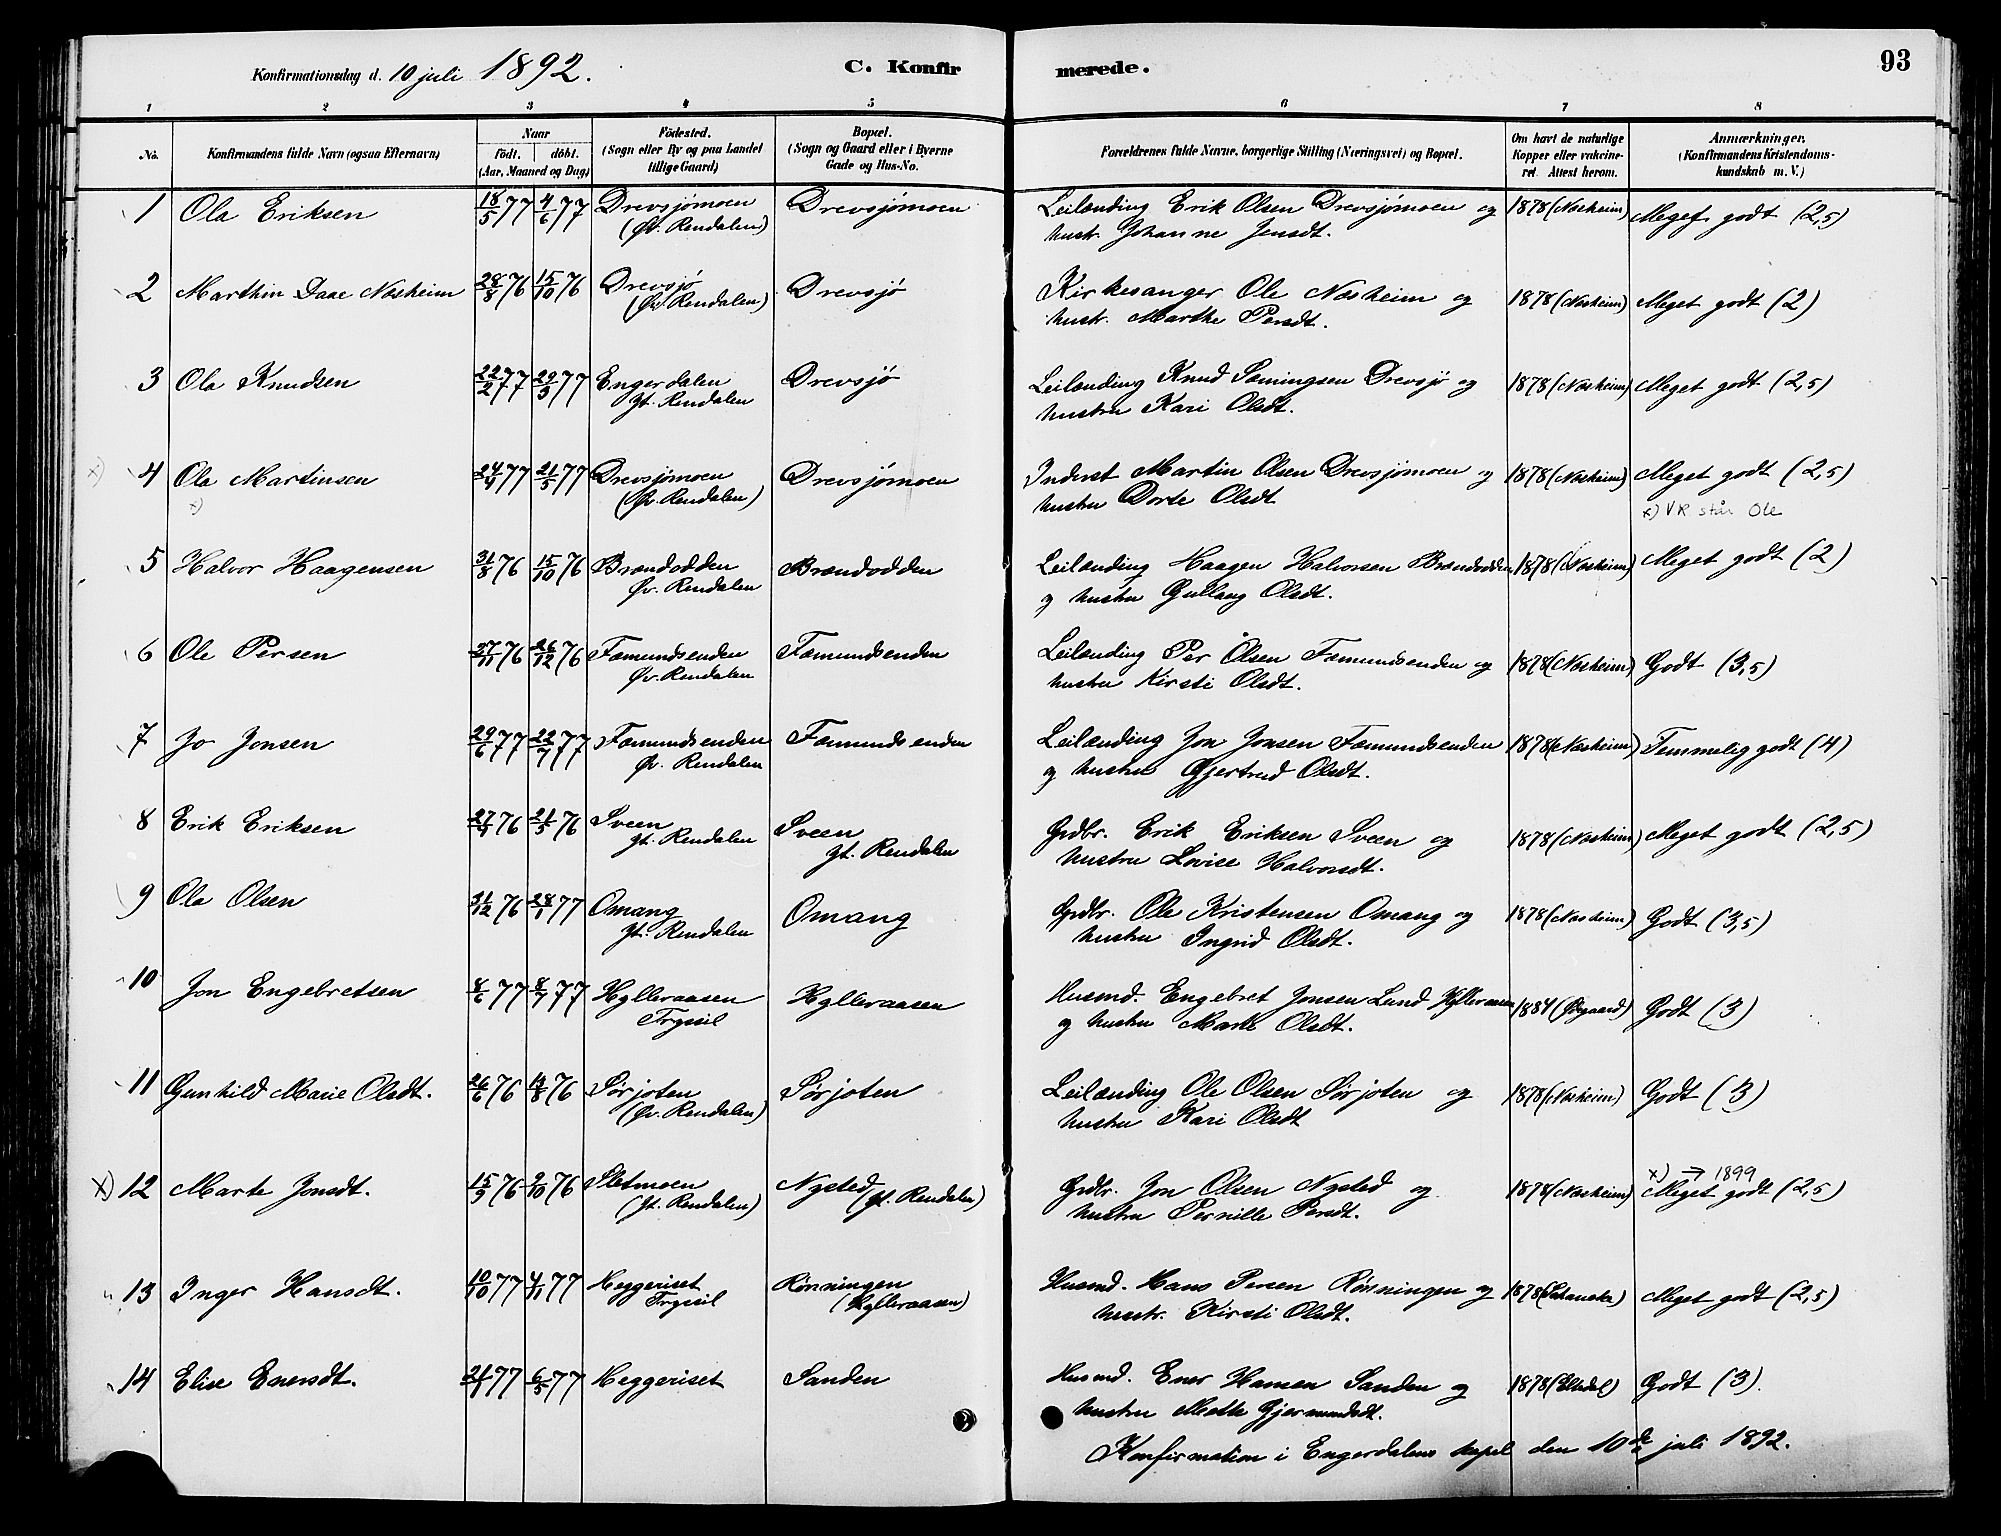 Konfirmationsdag d. 10 juli 1892.
C. Konfirmerede.
93
1 2 3 4 5 6 7 8
No.
Konfirmandens fulde Navn (ogsaa Efternavn)
Naar
födt. döbt.
(Aar, Maaned og Dag)
Födested.
(Sogn eller By og paa Landet
tillige Gaard)
Bopæl.
(Sogn og Gaard eller i Byerne
Gade og Hus-No.
Forældrenes fulde Navne, borgerlige Stilling (Næringsvei) og Bopæl.
Om havt de naturlige
Kopper eller vakcine-
ret. Attest herom.
Anmærkninger.
(Konfirmandens Kristendoms-
kundskab m. V.)
1 Ola Eriksen 18/5 77 4/6 77 Drevsjømoen Drevsjømoen Leilænding Erik Olsen Drevsjømoen og 1878 (Nosheim) Meget godt (2,5)
(Øv. Rendalen) hustr. Johanne Jensdt.
2 Marthin Daae Nosheim 28/8 76 15/10 76 Drevsjø Drevsjø Kirkesanger Ole Nosheim og 1878 (Nosheim) Meget godt (2)
(Øv. Rendalen) hustr. Marthe Persdt.
3 Ola Knudsen 22/2 77 29/3 77 Engerdalen Drevsjø Leilænding Knud Sæmingsen Drevsjø og 1878 (Nosheim) Meget godt (2,5)
Yt. Rendalen hustru Kari Olsdt.
x) 4 Ola Martinsen 24/4 77 21/5 77 Drevsjømoen Drevsjømoen Inderst Martin Olsen Drevsjømoen og 1878 (Nosheim) Meget godt (2,5)
x) (Øv. Rendalen) hustru Dorte Olsdt x) VR står Ole
5 Halvor Haagensen 31/8 76 15/10 76 Brændodden Brændodden Leilænding Haagen Halvorsen Brændodden 1878 (Nosheim) Meget godt (2)
Øv. Rendalen og hustru Gullaug Olsdt.
6 Ole Persen 27/11 76 26/12 76 Fæmundsenden Fæmundsenden Leilænding Per Olsen Fæmundsenden og 1878 (Nosheim) Godt (3,5)
Øv. Rendalen hustru Kirsti Olsdt.
7 Jo Jonsen 29/6 77 22/7 77 Fæmundsenden Fæmundsenden Leilænding Jon Jonsen Fæmundsenden 1878 (Nosheim) Temmelig godt (4)
Øv. Rendalen og hustru Gjertrud Olsdt.
8 Erik Eriksen 27/4 76 21/5 76 Sveen Sveen Grdbr. Erik Eriksen Sveen og 1878 (Nosheim) Meget godt (2,5)
Yt. Rendalen Yt. Rendalen hustru Lovise Halvorsdt.
9 Ola Olsen 31/12 76 28/1 77 Omang Omang Grdbr. Ole Kristensen Omang og 1878 (Nosheim) Godt (3,5)
Yt. Rendalen hustru Ingrid Olsdt.
10 Jon Engebretsen 8/6 77 8/7 77 Hylleraasen Hylleraasen Husmd. Engebret Jonsen Lund Hylleraasen 1884 (Ødgaard) Godt (3)
Trysil og hustru Marte Olsdt.
11 Gunhild Marie Olsdt. 26/6 76 13/8 76 Sørjoten Sørjoten Leilænding Ole Olsen Sørjoten og 1878 (Nosheim) Godt (3)
(Øv. Rendalen) hustru Kari Olsdt
x) → 1899
x) 12 Marte Jonsdt. 15/9 76 2/10 76 Sletmoen Nysted Grdbr. Jon Olsen Nysted og 1878 (Nosheim) Meget godt (2,5)
(Yt. Rendalen) (Yt. Rendalen) hustru Pernille Persdt.
13 Inger Hansdt. 10/10 77 4/11 77 Heggeriset Rønningen Husmd. Hans Persen Rønningen og 1878 Meget godt (2,5)
Trysil (Hylleraasen) hustr. Kirsti Olsdt.
14 Elise Enersdt. 77 6/5 77 Heggeriset Sanden Husmd. Ener Hansen Sanden og 1878 (Elsdal) Godt (3).
hustru Mette Gjermundsdt.
Konfirmation i Engerdalens kapel den 10de juli 1892.